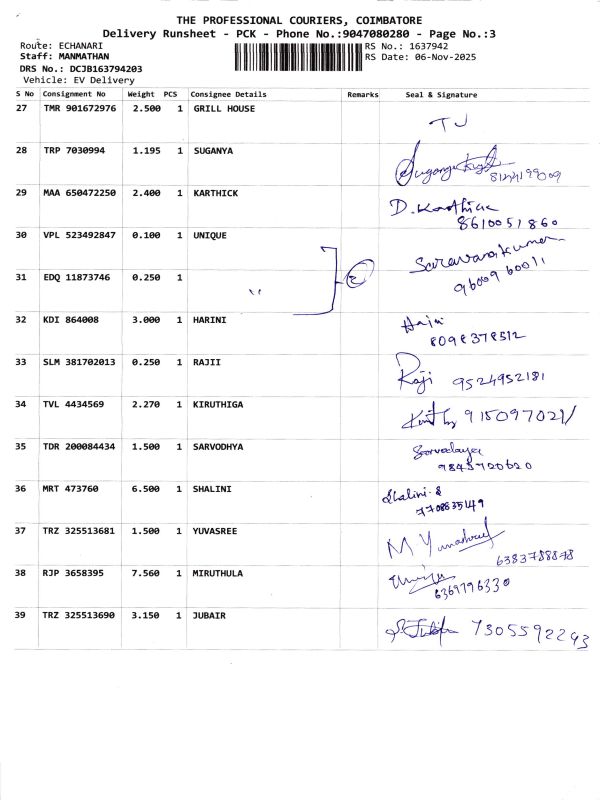 THE PROFESSIONAL COURIERS, COIMBATORE
Delivery Runsheet - PCK - Phone No.:9047080280 - Page No.:3
Route: ECHANARI RS No.: 1637942
Staff: MANMATHAN RS Date: 06-Nov-2025
DRS No.: DCJB163794203
Vehicle: EV Delivery
S No Consignment No Weight PCS Consignee Details Remarks Seal & Signature
27 TMR 901672976 2.500 1 GRILL HOUSE TJ
28 TRP 7030994 1.195 1 SUGANYA
29 MAA 650472250 2.400 1 KARTHICK D. Karthick
8610051860
30 VPL 523492847 0.100 1 UNIQUE Saravanakumar
9600960011
31 EDQ 11873746 0.250 1 " 2
32 KDI 864008 3.000 1 HARINI Harini
8098378512
33 SLM 381702013 0.250 1 RAJII Raji 9524952181
34 TVL 4434569 2.270 1 KIRUTHIGA 9150970211
35 TDR 200084434 1.500 1 SARVODHYA Sarvodaya
9843720620
36 MRT 473760 6.500 1 SHALINI Shalini.S
7708635149
37 TRZ 325513681 1.500 1 YUVASREE M Yuvashree
6383788878
38 RJP 3658395 7.560 1 MIRUTHULA
6369796330
39 TRZ 325513690 3.150 1 JUBAIR 7305592293